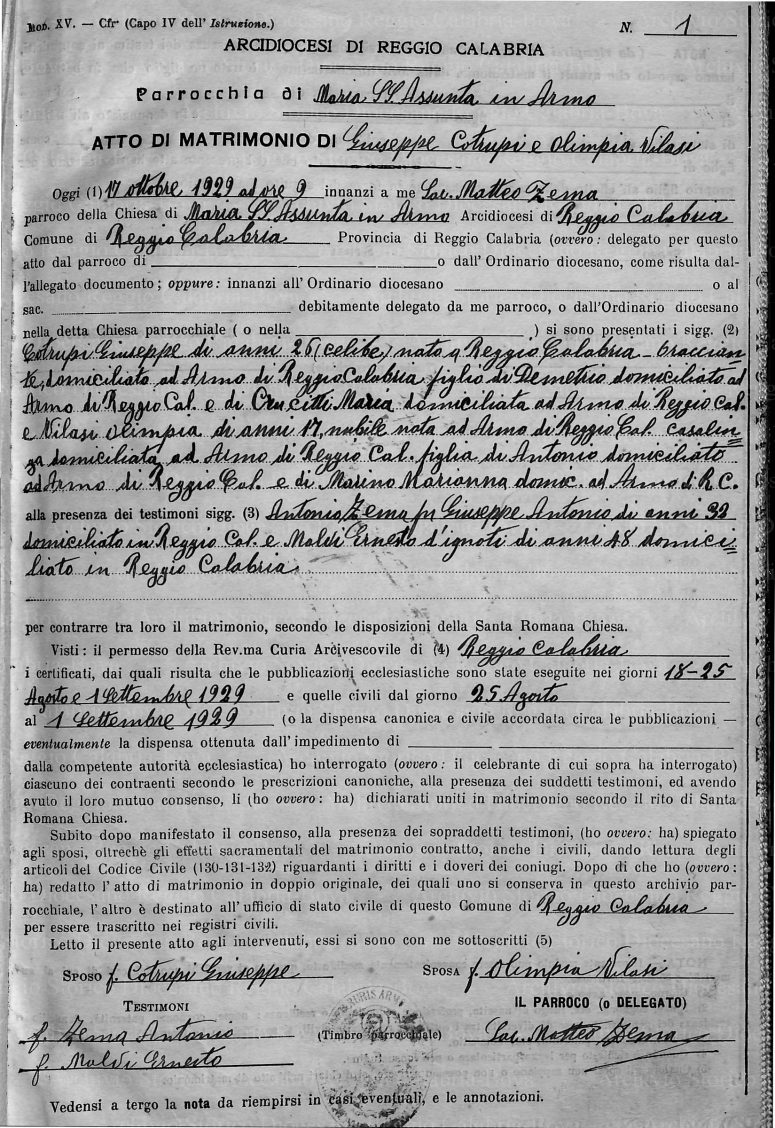 Mod. XV. — Cfr (Capo IV dell' Istruzione.) N. 1
ARCIDIOCESI DI REGGIO CALABRIA
Parrocchia di Maria SS Assunta in Armo
ATTO DI MATRIMONIO DI Giuseppe Cotrupi e Olimpia Vilasi
Oggi (1) 17 ottobre 1929 ad ore 9 innanzi a me Sac. Matteo Zema
parroco della Chiesa di Maria SS Assunta in Armo Arcidiocesi di Reggio Calabria
Comune di Reggio Calabria Provincia di Reggio Calabria (ovvero: delegato per questo
atto dal parroco di o dall' Ordinario diocesano, come risulta dal-
l'allegato documento; oppure: innanzi all' Ordinario diocesano o al
sac. debitamente delegato da me parroco, o dall'Ordinario diocesano
nella detta Chiesa parrocchiale ( o nella ) si sono presentati i sigg. (2)
Cotrupi Giuseppe di anni 26 (celibe) nato a Reggio Calabria - braccian=
te, domiciliato ad Armo di Reggio Calabria figlio di Demetrio domiciliato ad
Armo di Reggio Cal. e di Crucitti Maria domiciliata ad Armo di Reggio Cal.
e Vilasi Olimpia di anni 17 nubile nata ad Armo di Reggio Cal. casalin=
ga domiciliata ad Armo di Reggio Cal. figlia di Antonio domiciliato
ad Armo di Reggio Cal. e di Marino Marianna domic. ad Armo di R C.
alla presenza dei testimoni sigg. (3) Antonio Zema fu Giuseppe Antonio di anni 33
domiciliato in Reggio Cal. e Moldi Ernesto d'ignoti di anni 48 domici=
liato in Reggio Calabria.
per contrarre tra loro il matrimonio, secondo le disposizioni della Santa Romana Chiesa.
Visti: il permesso della Rev.ma Curia Arcivescovile di (4) Reggio Calabria
i certificati, dai quali risulta che le pubblicazioni ecclesiastiche sono state eseguite nei giorni 18-25
Agosto e 1 Settembre 1929 e quelle civili dal giorno 25 Agosto
al 1 Settembre 1929 (o la dispensa canonica e civile accordata circa le pubblicazioni —
eventualmente la dispensa ottenuta dall' impedimento di
dalla competente autorità ecclesiastica) ho interrogato (ovvero: il celebrante di cui sopra ha interrogato)
ciascuno dei contraenti secondo le prescrizioni canoniche, alla presenza dei suddetti testimoni, ed avendo
avuto il loro mutuo consenso, li (ho ovvero: ha) dichiarati uniti in matrimonio secondo il rito di Santa
Romana Chiesa.
Subito dopo manifestato il consenso, alla presenza dei sopraddetti testimoni, (ho ovvero: ha) spiegato
agli sposi, oltrechè gli effetti sacramentali del matrimonio contratto, anche i civili, dando lettura degli
articoli del Codice Civile (130-131-132) riguardanti i diritti e i doveri dei coniugi. Dopo di che ho (ovvero:
ha) redatto l' atto di matrimonio in doppio originale, dei quali uno si conserva in questo archivio par-
rocchiale, l'altro è destinato all'ufficio di stato civile di questo Comune di Reggio Calabria
per essere trascritto nei registri civili.
Letto il presente atto agli intervenuti, essi si sono con me sottoscritti (5)
SPOSO f. Cotrupi Giuseppe SPOSA f. Olimpia Vilasi
TESTIMONI IL PARROCO (o DELEGATO)
f. Zema Antonio (Timbro parrocchiale) Sac. Matteo Zema
f. Moldi Ernesto
Vedensi a tergo la nota da riempirsi in casi eventuali, e le annotazioni.